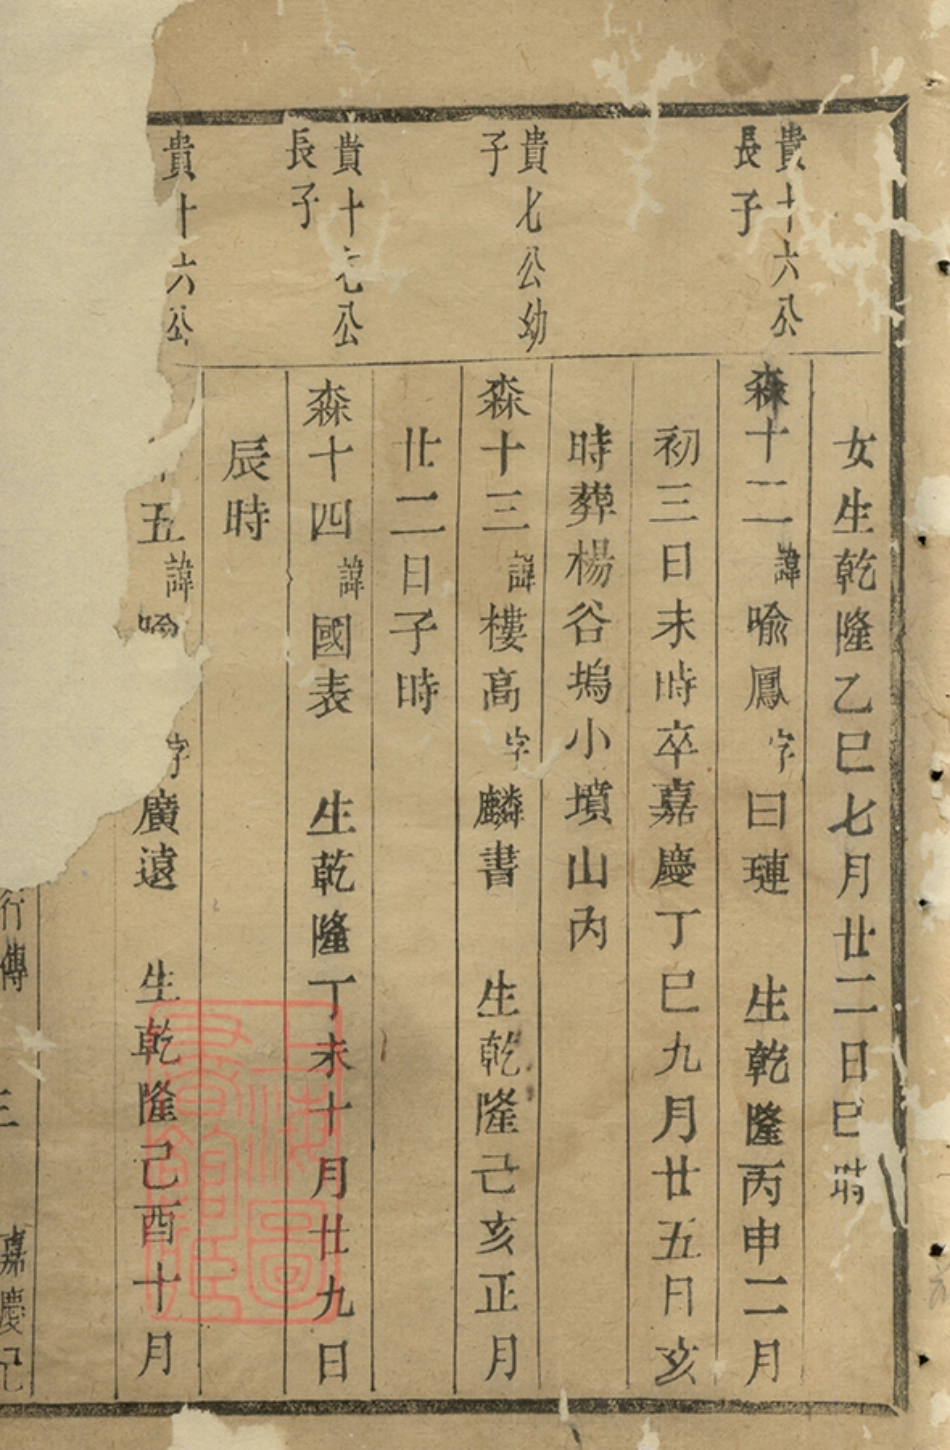 女生乾隆乙巳七月廿二日巳時
貴十六公
長子
森十二諱喻鳳字曰璉　生乾隆丙申二月
初三日未時卒嘉慶丁巳九月廿五日亥
時葬楊谷塢小墳山內
貴七公幼
子
森十三諱樓高字麟書　生乾隆己亥正月
廿二日子時
貴十七公
長子
森十四諱國表　生乾隆丁未十月廿九日
辰時
貴十六公
五諱喻字廣遠　生乾隆己酉十月
行傳　三　嘉慶己
上海圖書館藏